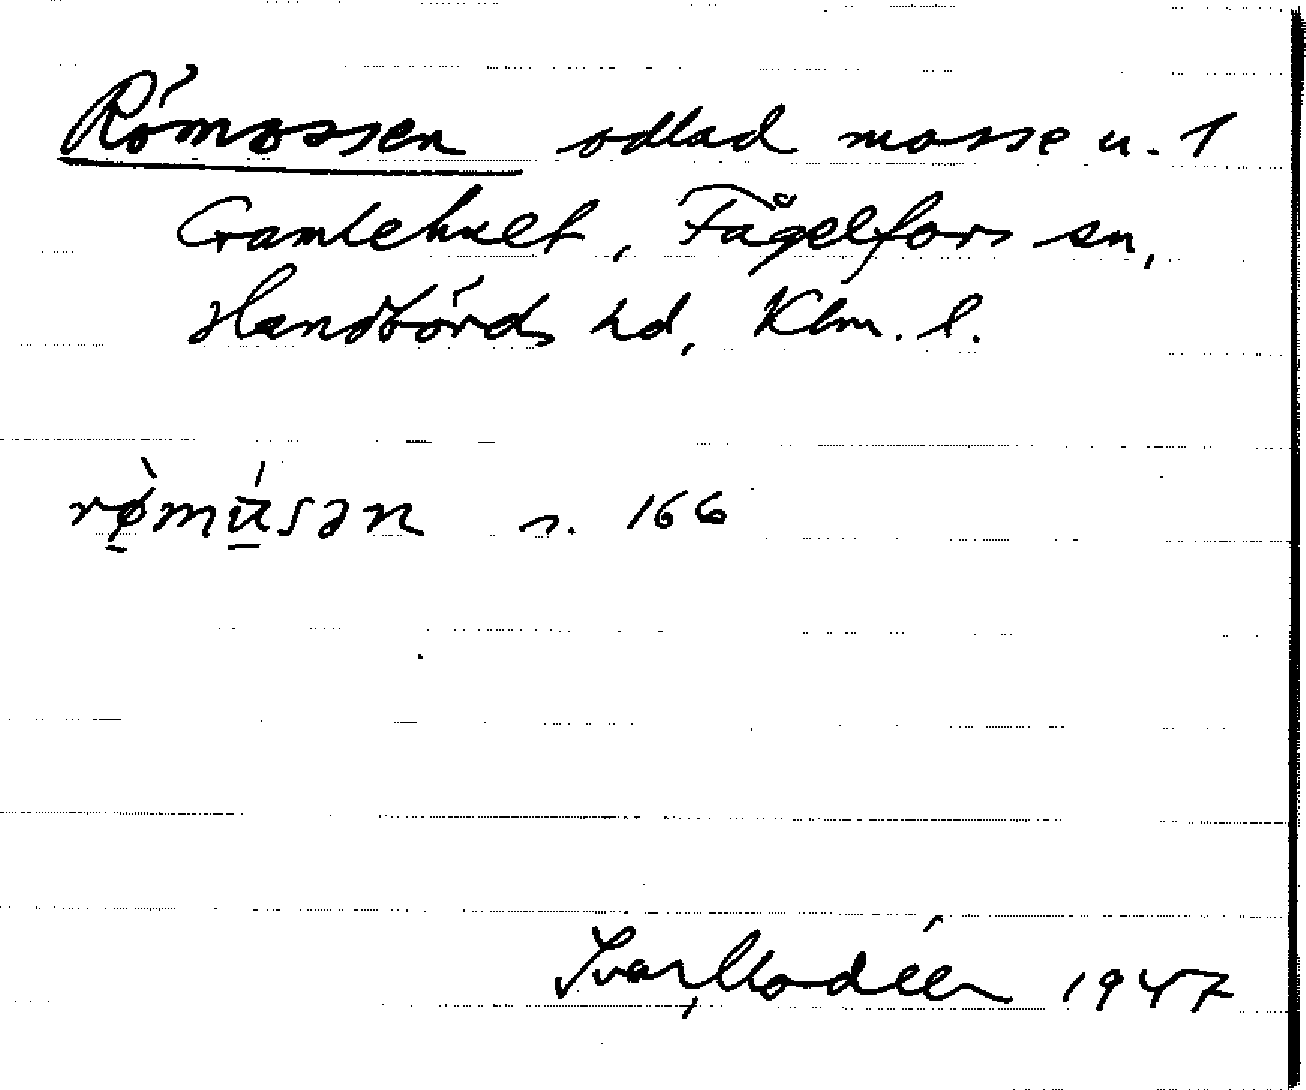 Römossen odlad mosse u. 1
Gamlehult, Fågelfors sn,
Handbörds hd, Klm. l.
rø̀mu̇́sən s. 166
Ivar Modéer 1947